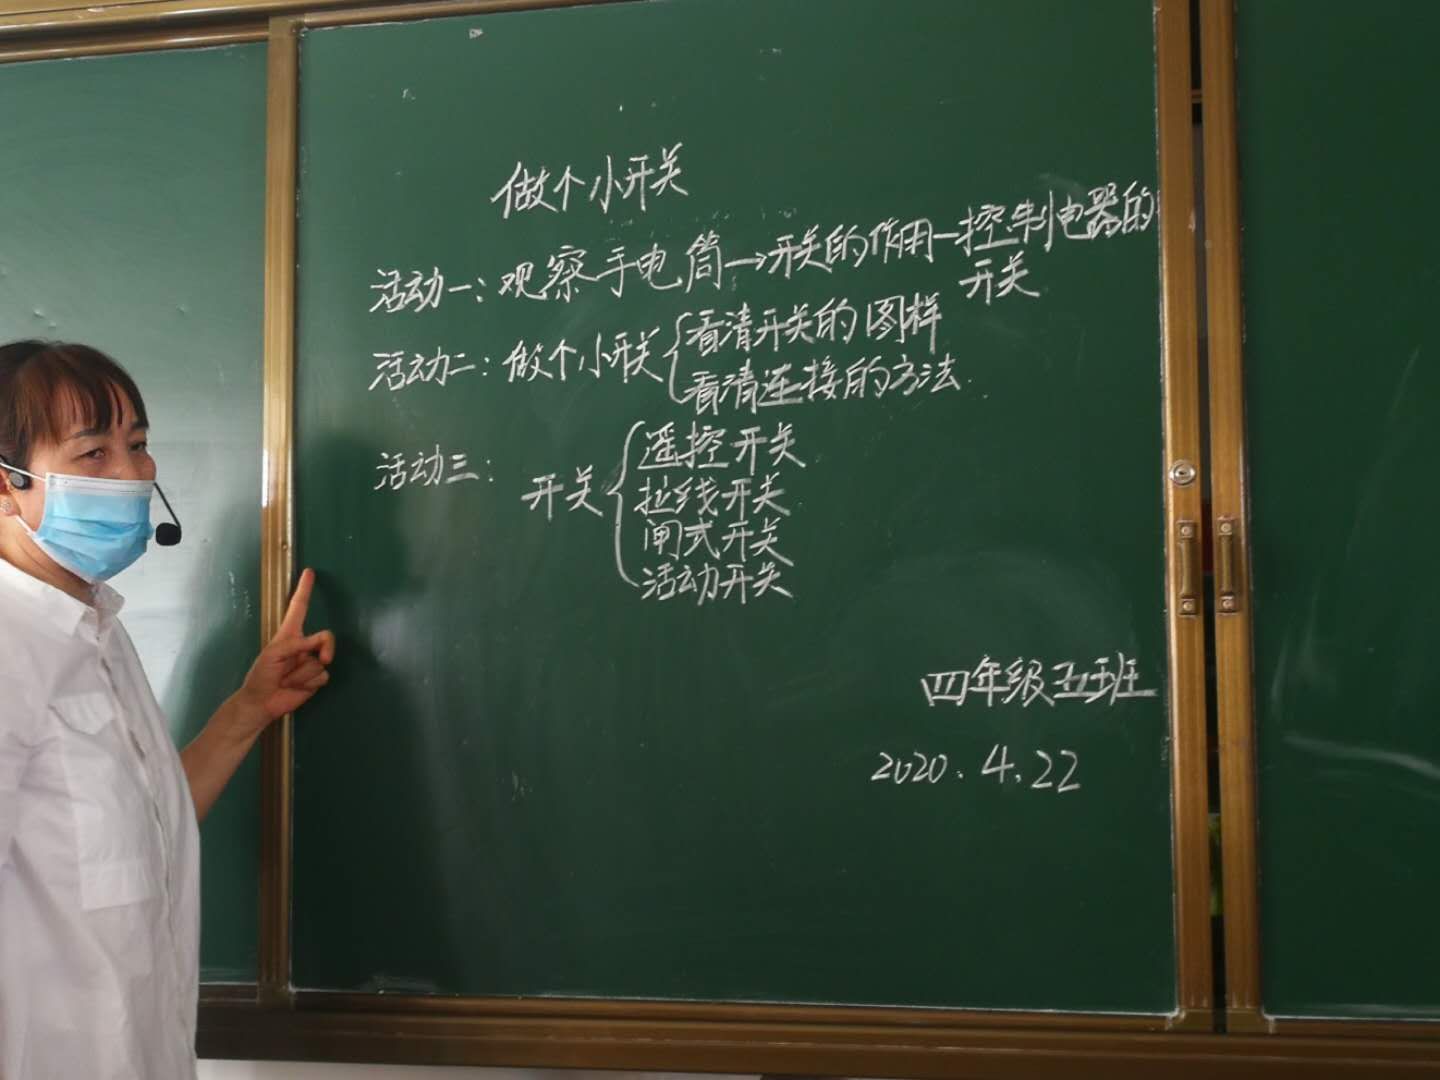 做个小开关
活动一：观察手电筒→开关的作用—控制电器的
开关
活动二：做个小开关{看清开关的图样
看清连接的方法.
活动三：开关{遥控开关
拉线开关
闸式开关
活动开关
四年级五班
2020.4.22